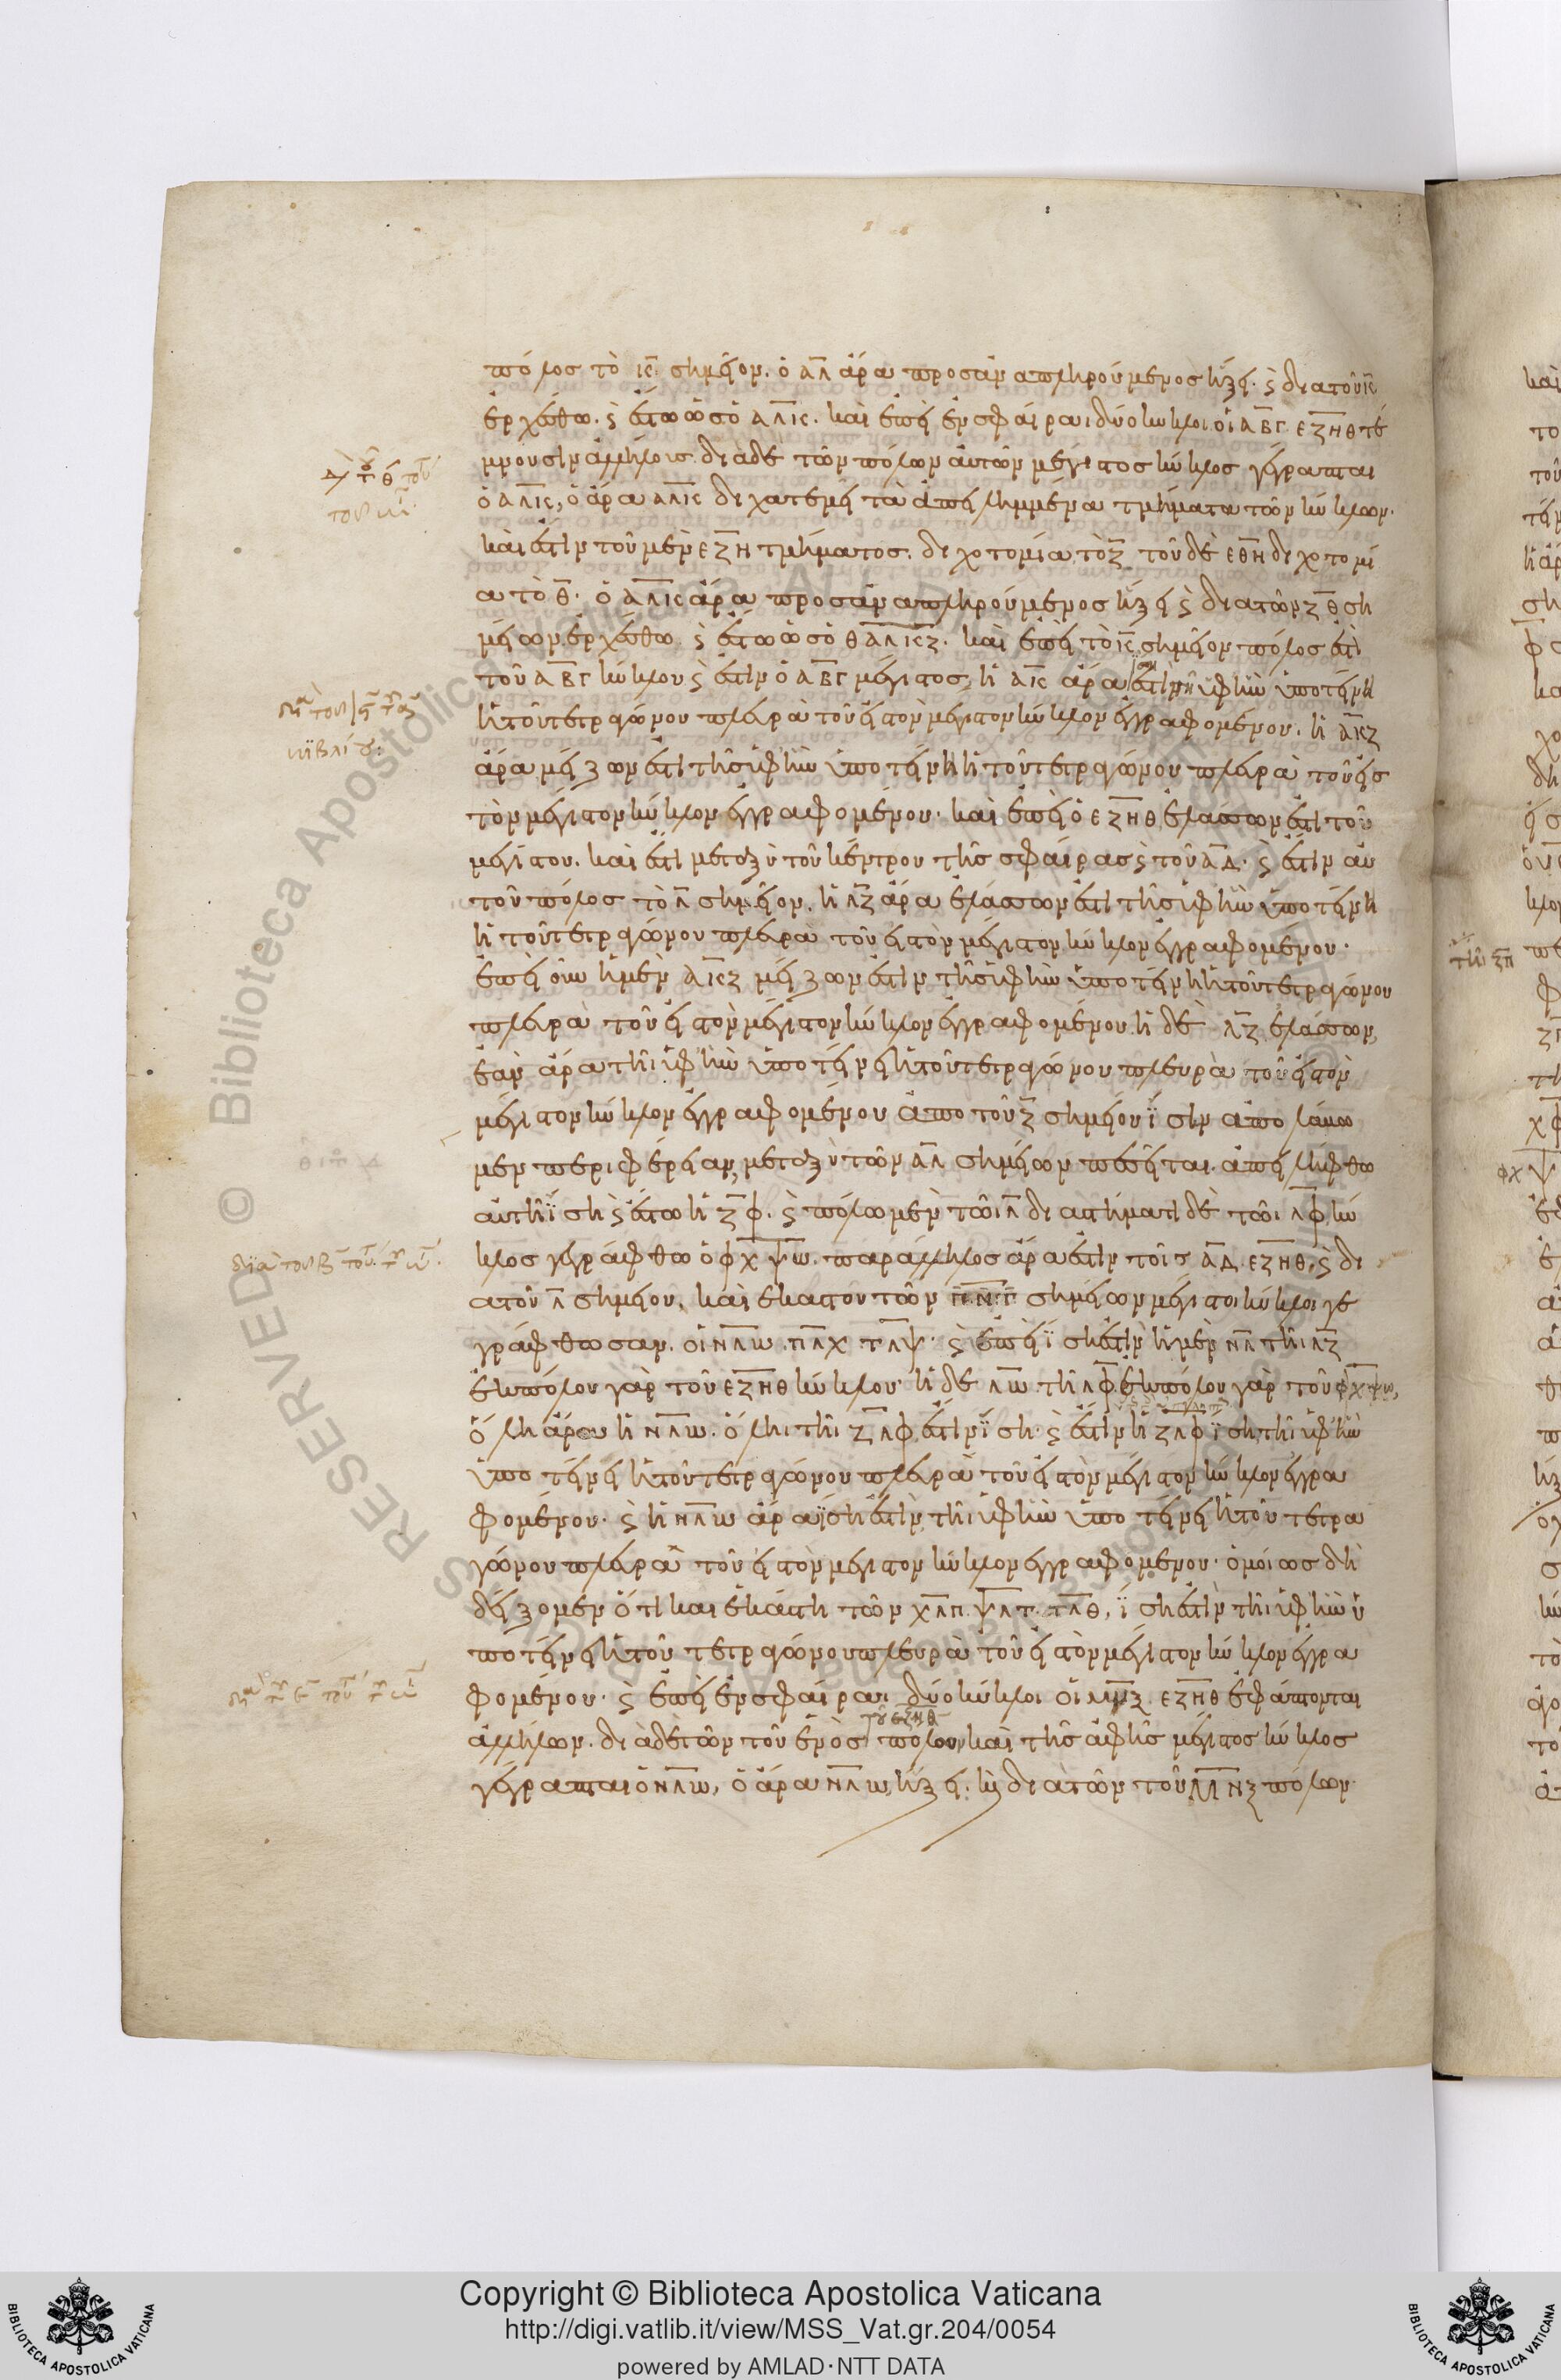 πόλος τὸ Κ σημεῖον. ὁ ΑΛ ἄρα προσαναπληρούμενος ἥξει καὶ διὰ τοῦ Κ
ἐρχέσθω. καὶ ἔστω ὡς ὁ ΑΛΚ. καὶ ἐπεὶ ἐν σφαίραι δύο κύκλοι οἱ ΑΒΓ ΕΖΗΘ τέ
μνουσιν ἀλλήλους. διὰ δὲ τῶν πόλων αὐτῶν μέγιστος κύκλος γέγραπται
ὁ ΑΛΚ, ὁ ἄρα ΑΛΚ δίχα τεμεῖ τὰ ἀπειλημμένα τμήματα τῶν κύκλων.
καὶ ἔστιν τοῦ μὲν ΕΖΗ τμήματος διχοτομία τὸ Ζ τοῦ δὲ ΕΘΗ διχοτομί
α τὸ Θ. ὁ ΑΛΚ ἄρα προσαναπληρούμενος ἥξει καὶ διὰ τῶν Ζ Θ ση
μείων. ἐρχέσθω. καὶ ἔστω ὡς ὁ ΘΑΛΚΖ. καὶ ἐπεὶ τὸ Κ σημεῖον πόλος ἐστὶ
τοῦ ΑΒΓ κύκλου καὶ ἔστιν ὁ ΑΒΓ μέγιστος, ἡ ΑΚ ἄρα ἐστὶν ὑφ' ἣν ὑποτείνει
ἡ τοῦ τετραγώνου πλευρὰ τοῦ εἰς τὸν μέγιστον κύκλον ἐγγραφομένου. ἡ ΑΚΖ
ἄρα μείζων ἐστὶ τῆς ὑφ' ἣν ὑποτείνει ἡ τοῦ τετραγώνου πλευρὰ τοῦ εἰς
τὸν μέγιστον κύκλον ἐγγραφομένου. καὶ ἐπεὶ ὁ ΕΖΗΘ ἐλάσσων ἐστὶ τοῦ
μεγίστου. καὶ ἔστι μεταξὺ τοῦ κέντρου τῆς σφαίρας καὶ τοῦ ΑΔ. καὶ ἔστιν αὐ
τοῦ πόλος τὸ Λ σημεῖον. ἡ ΛΖ ἄρα ἐλάσσων ἐστὶ τῆς ὑφ' ἣν ὑποτείνει
ἡ τοῦ τετραγώνου πλευρὰ τοῦ εἰς τὸν μέγιστον κύκλον ἐγγραφομένου.
ἐπεὶ οὖν ἡ μὲν ΑΚΖ μείζων ἐστὶν τῆς ὑφ' ἣν ὑποτείνει ἡ τοῦ τετραγώνου
πλευρὰ τοῦ εἰς τὸν μέγιστον κύκλον ἐγγραφομένου. ἡ δὲ ΛΖ ἐλάσσων,
ἐὰν ἄρα τῆι ὑφ' ἣν ὑποτείνει ἡ τοῦ τετραγώνου πλευρὰ τοῦ εἰς τὸν
μέγιστον κύκλον ἐγγραφομένου ἀπὸ τοῦ Ζ σημείου ἴσην ἀπολάβω
μεν περιφέρειαν, μεταξὺ τῶν ΑΛ σημείων πεσεῖται. ἀπειλήφθω
αὐτῆι ἴση καὶ ἔστω ἡ ΖΦ. καὶ πόλωι μὲν τῶι Λ διαστήματι δὲ τῶι ΛΦ κύ
κλος γεγράφθω ὁ ΦΧΨΩ. παράλληλος ἄρα ἐστὶν τοῖς ΑΔ ΕΖΗΘ, καὶ δι
ὰ τοῦ Λ σημείου, καὶ ἑκάστου τῶν σημείων μέγιστοι κύκλοι γε
γράφθωσαν. οἱ ΝΛΩ ΠΛΧ ΤΛΨ. καὶ ἐπεὶ ἴση ἐστὶν ἡ μὲν ΝΛ τῆι ΛΖ
ἐκ πόλου γὰρ τοῦ ΕΖΗΘ κύκλου ἡ δὲ ΛΩ τῆι ΛΦ ἐκ πόλου γὰρ τοῦ ΦΧΨΩ,
ὅλη ἄρα ἡ ΝΛΩ. ὅληι τῆι ΖΛΦ ἐστὶν ἴση. καὶ ἔστιν ἡ ΖΛΦ ἴση τῆι ὑφ' ἣν
ὑποτείνει ἡ τοῦ τετραγώνου πλευρὰ τοῦ εἰς τὸν μέγιστον κύκλον ἐγγρα
φομένου. καὶ ἡ ΝΛΩ ἄρα ἴση ἐστὶν τῆι ὑφ' ἣν ὑποτείνει ἡ τοῦ τετρα
γώνου πλευρὰ τοῦ εἰς τὸν μέγιστον κύκλον ἐγγραφομένου. ὁμοίως δὴ
δείξομεν ὅτι καὶ ἑκάστη τῶν ΧΛΠ ΨΛΤ ΤΛΘ, ἴση ἐστὶν τῆι ὑφ' ἣν ὑ
ποτείνει ἡ τοῦ τετραγώνου πλευρὰ τοῦ εἰς τὸν μέγιστον κύκλον ἐγγρα
φομένου. καὶ ἐπεὶ ἐν σφαίραι δύο κύκλοι οἱ ΜΝΞ ΕΖΗΘ ἐφάπτονται
ἀλλήλων. διὰ δὲ τῶν τοῦ ἑνὸς τοῦ ΕΖΗΘ πόλου, καὶ τῆς ἁφῆς μέγιστος κύκλος
γέγραπται ὁ ΝΛΩ, ὁ ἄρα ΝΛΩ ἥξει καὶ διὰ τῶν τοῦ ΜΝΞ πόλων.
© Biblioteca Apostolica Vaticana ALL RIGHTS RESERVED
Copyright © Biblioteca Apostolica Vaticana
http://digi.vatlib.it/view/MSS_Vat.gr.204/0054
powered by AMLAD·NTT DATA
BIBLIOTECA APOSTOLICA VATICANA
BIBLIOTECA APOSTOLICA VATICANA